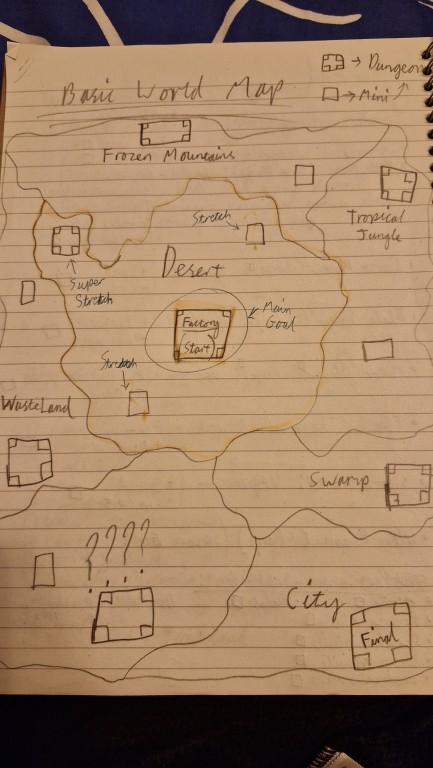 Basic World Map
→ Dungeon
→ Mini
Frozen Mountains
Tropical
Jungle
Stretch
Desert
Super
Stretch
Main
Goal
Factory
(Start)
Stretch
WasteLand
Swamp
????
City
Final